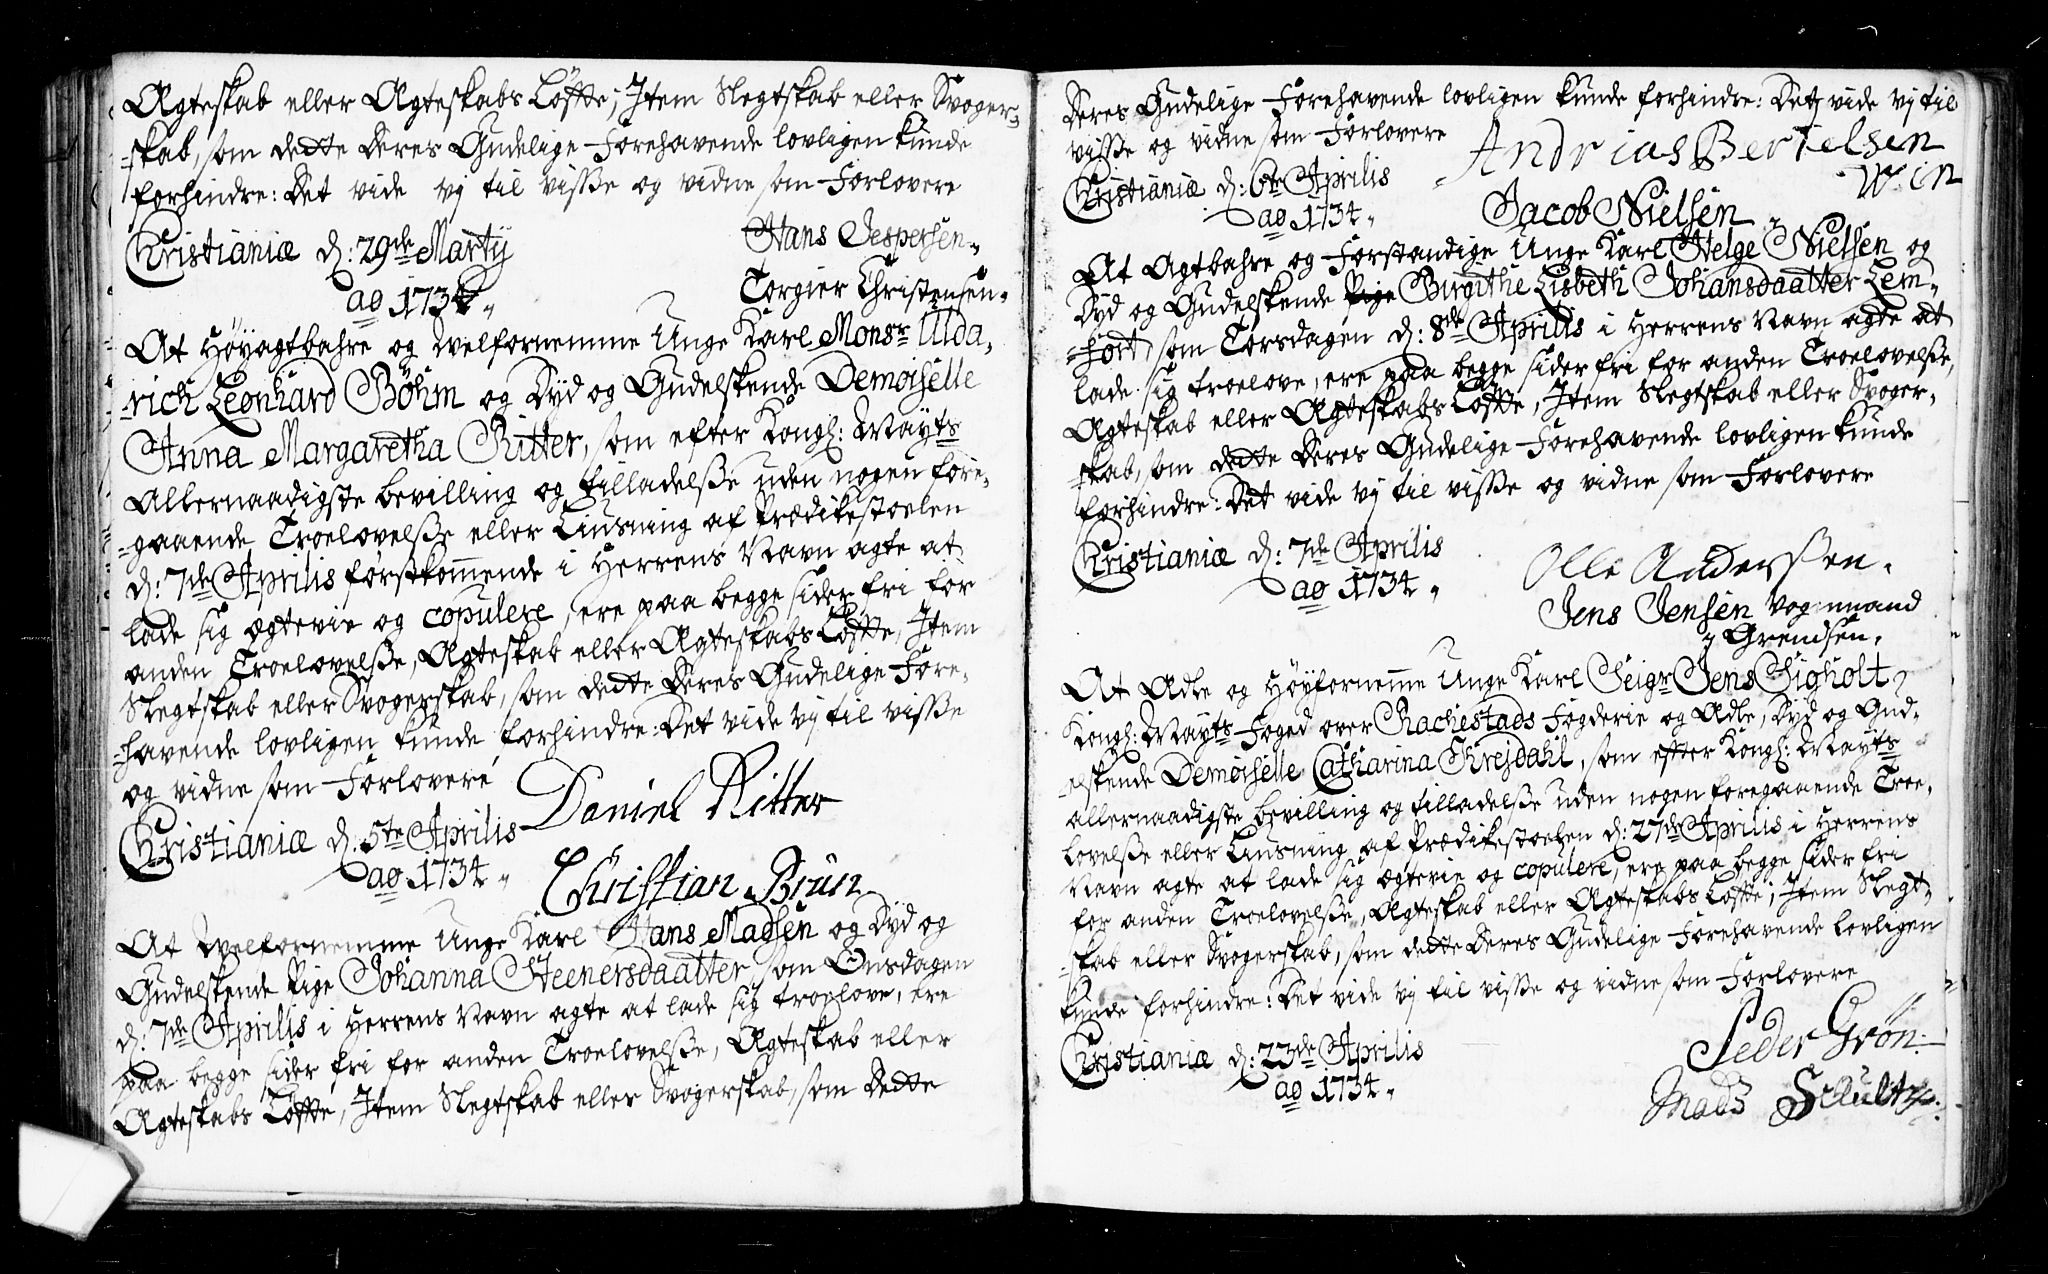 Ægteskab eller Ægteskabs Löffte; Item Slegtskab eller Svoger-
-skab, som dette Deres Gudelige Forehavende lovligen kunde
forhindre: Det vide vj til visse og vidne som Forlovere
Christianiæ d: 29de Martij
Hans Jespersen
ao 1734
Torgier Christensen
At Höyagtbahre og Welfornemme Unge Karl Monsr Ulda-
-rich Leonhard Böhm og Dyd og Gudelskende Demoiselle
Anna Margaretha Ritter, som efter Kongl: Mayts
Allernaadigste bevilling og tilladelsse uden nogen fore-
-gaaende Troelovelsse eller Liusning af Prædikestoelen
d: 7de Aprilis förstkommende i Herrens Navn agte at
lade sig ægtevie og copulere, ere paa begge sider fri for
anden Troelovelsse, Ægteskab eller Ægteskabs Löffte, Item
Slegtskab eller Svogerskab, som dette Deres Gudelige Fore-
-havende lovligen kunde forhindre: Det vide vj til visse
og vidne som Forlovere
Daniel Ritter
Christianiæ d: 5te Aprilis
ao 1734
Christian Brun
At Welfornemme Unge Karl Hans Madsen og Dyd og
Gudelskende Pige Johanna Steenersdaatter, som Onsdagen
d: 7de Aprilis i Herrens Navn agte at lade sig troelove, ere
paa begge sider fri for anden Troelovelsse, Ægteskab eller
Ægteskabs Löffte, Item Slegtskab eller Svogerskab, som dette
Deres Gudelige Forehavende lovligen kunde forhindre: Det vide vj til
visse og vidne som Forlovere
Andrias Bertelsen
Christianiæ d: 6te Aprilis
Win
ao 1734
Jacob Nielsen
At Agtbahre og Forstandige Unge Karl Helge Nielsen og
Dyd og Gudelskende Pige Birgithe Lisbeth Johansdaatter Lem-
-fort, som Torsdagen d: 8de Aprilis i Herrens Navn agte at
lade sig troelove, ere paa begge sider fri for anden Troelovelsse,
Ægteskab eller Ægteskabs Löffte, Item Slegtskab eller Svoger-
-skab, som dette Deres Gudelige Forehavende lovligen kunde
forhindre: Det vide vj til visse og vidne som Forlovere
Christianiæ d: 7de Aprilis
Olle Anderssen
ao 1734
Jens Jensen Vognmand
y Grendsen.
At Ædle og Höyfornemme Unge Karl Seigr Jens Sigholt
Kongl: Mayts Foged over Rachestads Fogderie og Ædle, Dyd og Gud-
-elskende Demoiselle Catharina Krejdahl, som efter Kongl: Mayts
allernaadigste bevilling og tilladelsse uden nogen foregaaende Troe-
lovelsse eller Liusning af Prædikestoelen d: 27de Aprilis i Herrens
Navn agte at lade sig ægtevie og copulere, ere paa begge sider fri
for anden Troelovelsse, Ægteskab eller Ægteskabs Löffte; Item Slegt-
-skab eller Svogerskab, som dette Deres Gudelige Forehavende lovligen
kunde forhindre: Det vide vj til visse og vidne som Forlovere
Christianiæ d: 23de Aprilis
Peder Grön
ao 1734
Mads Schultz